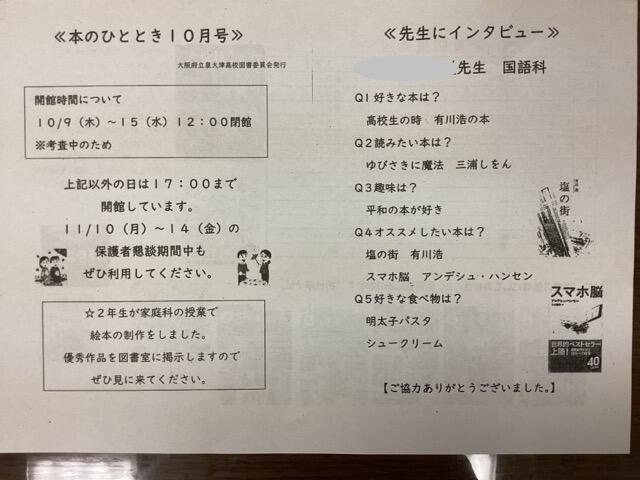 ≪本のひととき１０月号≫
大阪府立泉大津高校図書委員会発行
開館時間について
１０/９（木）～１５（水）１２：００閉館
※考査中のため
上記以外の日は１７：００まで
開館しています。
１１/１０（月）～１４（金）の
保護者懇談期間中も
ぜひ利用してください。
☆２年生が家庭科の授業で
絵本の制作をしました。
優秀作品を図書室に掲示しますので
ぜひ見に来てください。
≪先生にインタビュー≫
先生　国語科
Q１好きな本は？
高校生の時　有川浩の本
Q２読みたい本は？
ゆびさきに魔法　三浦しをん
Q３趣味は？
平和の本が好き
Q４オススメしたい本は？
塩の街　有川浩
スマホ脳　アンデシュ・ハンセン
Q５好きな食べ物は？
明太子パスタ
シュークリーム
【ご協力ありがとうございました。】
塩の街
スマホ脳
アンデシュ・ハンセン
世界的ベストセラー
上陸！
40